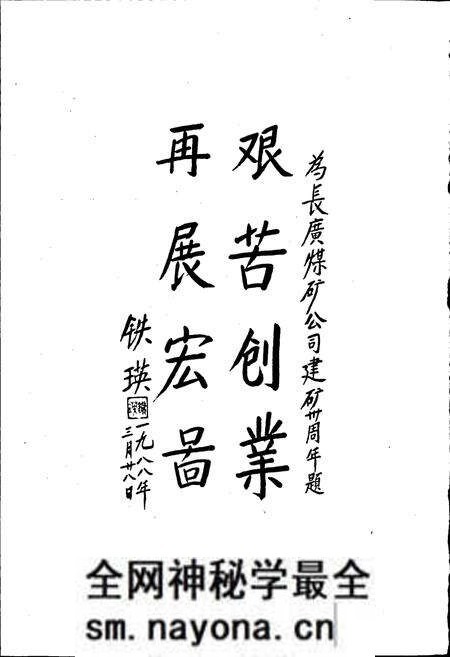 為長廣煤矿公司建矿卅周年題
艰苦创業
再展宏啚
铁瑛
一九八八年
三月廿八日
全网神秘学最全
sm.nayona.cn